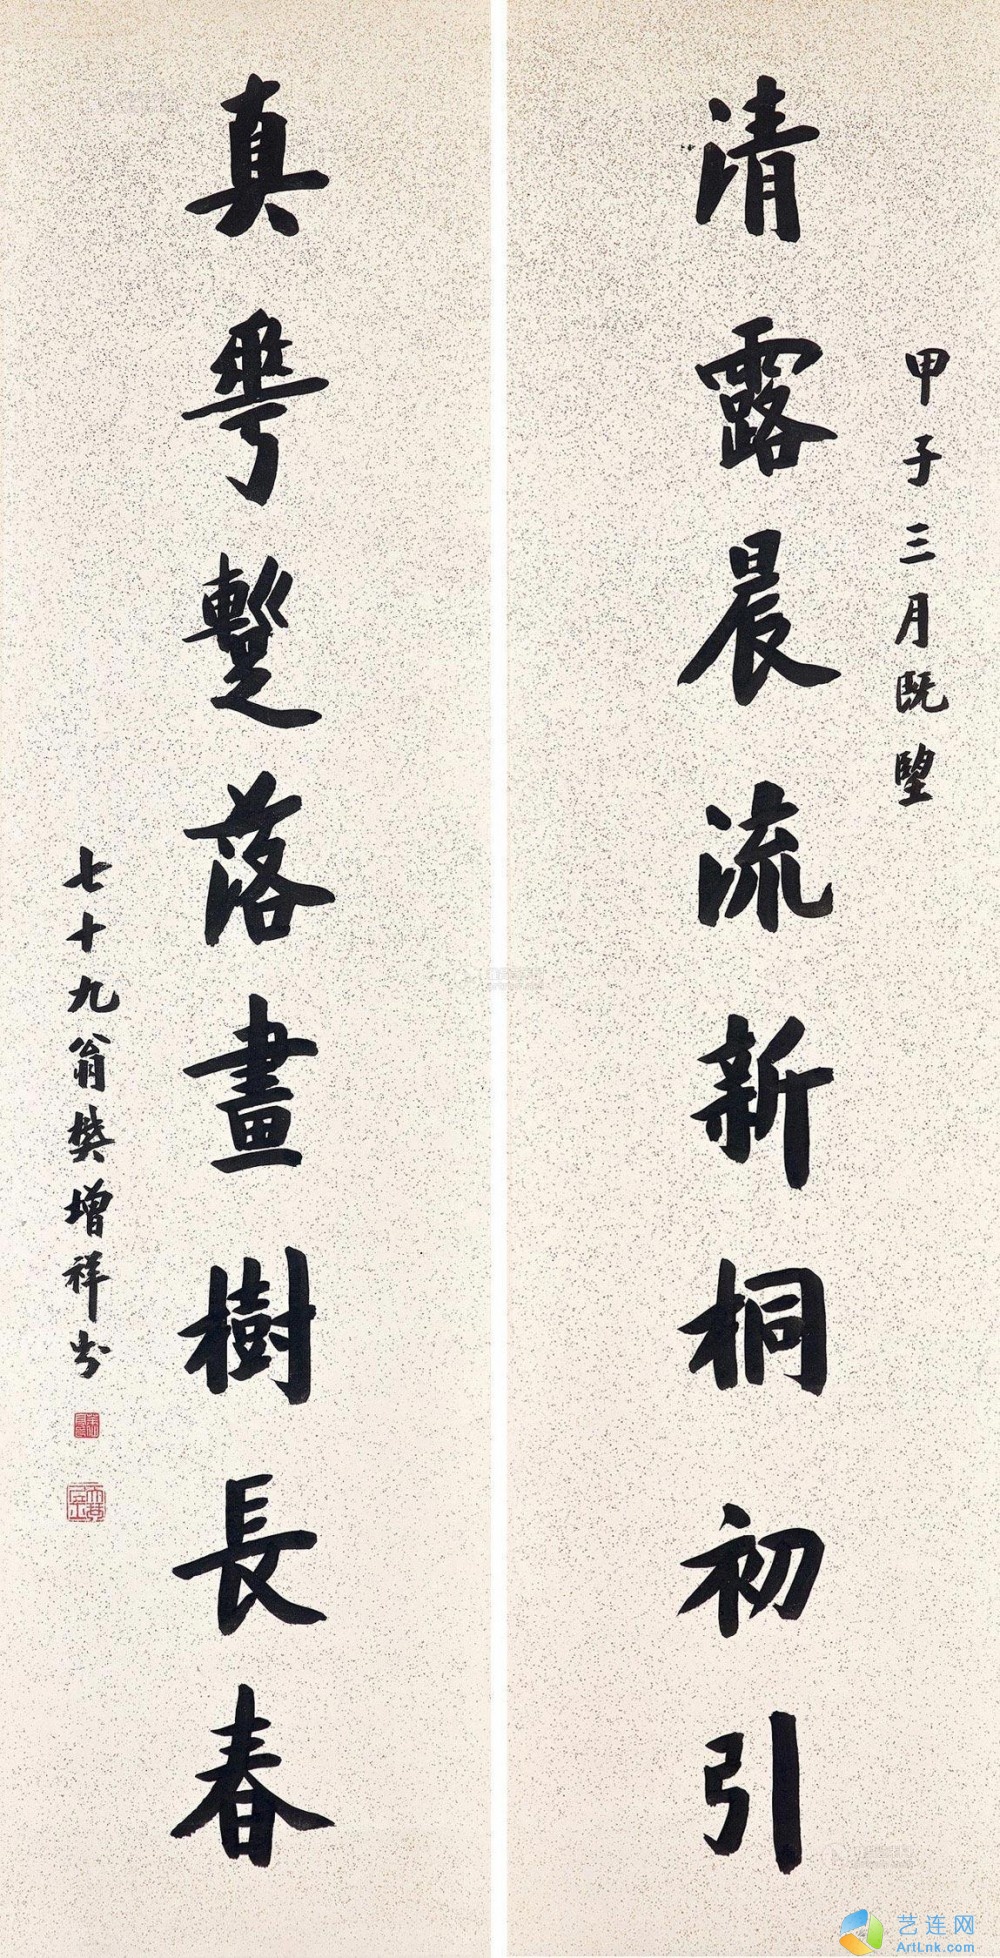 甲子三月既朢
清露晨流新桐初引
真𠌶蹔落畫樹長春
七十九翁樊增祥
艺连网
ArtLnk.com